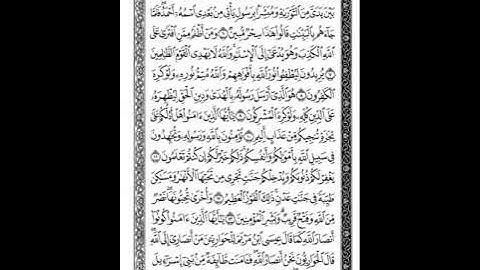 بَيْنَ يَدَيَّ مِنَ التَّوْرَىٰةِ وَمُبَشِّرًا بِرَسُولٍ يَأْتِي مِنْ بَعْدِي اسْمُهُ أَحْمَدُ فَلَمَّا
جَاءَهُم بِالْبَيِّنَٰتِ قَالُوا هَٰذَا سِحْرٌ مُّبِينٌ ٦ وَمَنْ أَظْلَمُ مِمَّنِ افْتَرَىٰ عَلَى
اللَّهِ الْكَذِبَ وَهُوَ يُدْعَىٰ إِلَى الْإِسْلَٰمِ وَاللَّهُ لَا يَهْدِي الْقَوْمَ الظَّٰلِمِينَ
٧ يُرِيدُونَ لِيُطْفِـُٔوا نُورَ اللَّهِ بِأَفْوَٰهِهِمْ وَاللَّهُ مُتِمُّ نُورِهِ وَلَوْ كَرِهَ
الْكَٰفِرُونَ ٨ هُوَ الَّذِي أَرْسَلَ رَسُولَهُ بِالْهُدَىٰ وَدِينِ الْحَقِّ لِيُظْهِرَهُ
عَلَى الدِّينِ كُلِّهِ وَلَوْ كَرِهَ الْمُشْرِكُونَ ٩ يَٰٓأَيُّهَا الَّذِينَ ءَامَنُوا هَلْ أَدُلُّكُمْ عَلَىٰ
تِجَٰرَةٍ تُنجِيكُم مِّنْ عَذَابٍ أَلِيمٍ ١٠ تُؤْمِنُونَ بِاللَّهِ وَرَسُولِهِ وَتُجَٰهِدُونَ
فِي سَبِيلِ اللَّهِ بِأَمْوَٰلِكُمْ وَأَنفُسِكُمْ ذَٰلِكُمْ خَيْرٌ لَّكُمْ إِن كُنتُمْ تَعْلَمُونَ ١١
يَغْفِرْ لَكُمْ ذُنُوبَكُمْ وَيُدْخِلْكُمْ جَنَّٰتٍ تَجْرِي مِن تَحْتِهَا الْأَنْهَٰرُ وَمَسَٰكِنَ
طَيِّبَةً فِي جَنَّٰتِ عَدْنٍ ذَٰلِكَ الْفَوْزُ الْعَظِيمُ ١٢ وَأُخْرَىٰ تُحِبُّونَهَا نَصْرٌ
مِّنَ اللَّهِ وَفَتْحٌ قَرِيبٌ وَبَشِّرِ الْمُؤْمِنِينَ ١٣ يَٰٓأَيُّهَا الَّذِينَ ءَامَنُوا كُونُوا
أَنصَارَ اللَّهِ كَمَا قَالَ عِيسَى ابْنُ مَرْيَمَ لِلْحَوَارِيِّـۧنَ مَنْ أَنصَارِي إِلَى اللَّهِ
قَالَ الْحَوَارِيُّونَ نَحْنُ أَنصَارُ اللَّهِ فَـَٔامَنَت طَّآئِفَةٌ مِّنۢ بَنِي إِسْرَٰٓءِيلَ